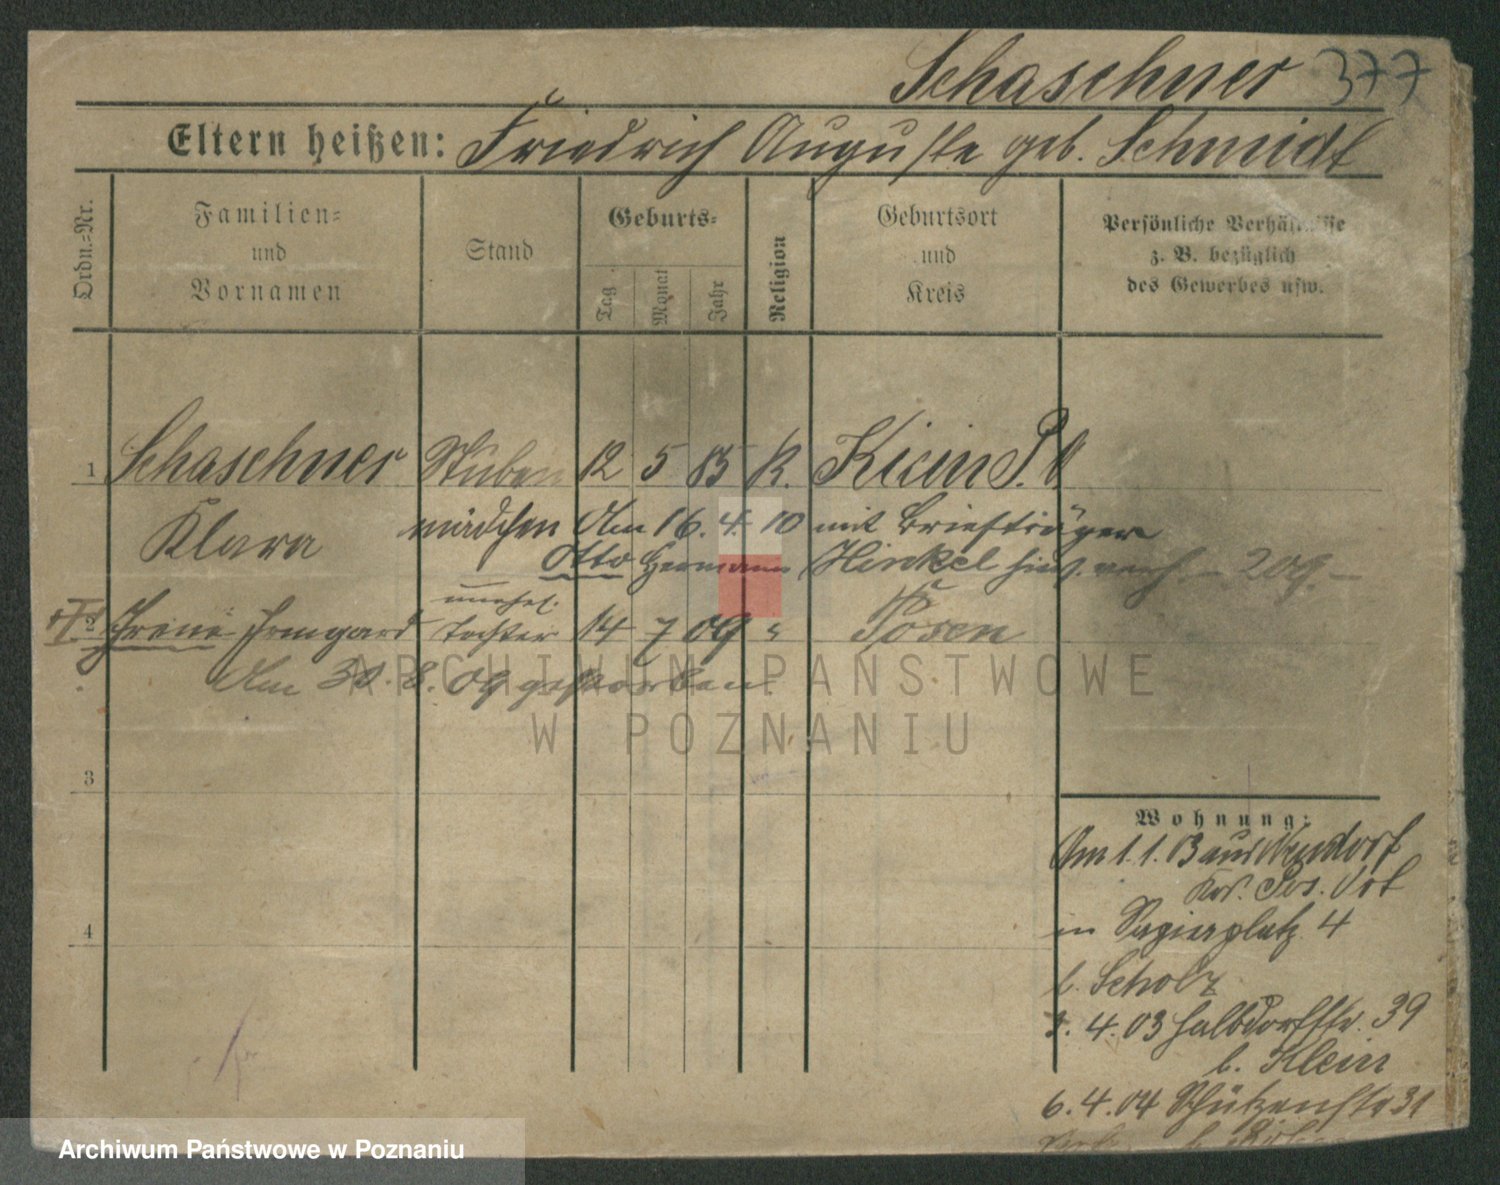 Schaschner 377
Eltern heißen: Friedrich Auguste geb. Schmidt
Ordn.=Nr.
Familien=
und
Vornamen
Stand
Geburts=
Tag
Monat
Jahr
Religion
Geburtsort
und
Kreis
Persönliche Verhältnisse
z. B. bezüglich
des Gewerbes usw.
1 Schaschner Stuben 12 5 85 K. Kicin P. O
Klara mädchen Am 16. 4. 10 mit Briefträger
Otto Hermann Hinkel hier verh. – 209. –
unehel.
2 Irene Irmgard Tochter 14 7 09 " Posen
Am 30. 8. 09 gestorben.
3
4
Wohnung:
Am 1. 1. 03 aus
Krs. Pos. Ost
in Sapiehaplatz 4
b. Scholz
3. 4. 03 Halbdorfstr. 39
b. Klein
6. 4. 04 Schützenstr 31
ARCHIWUM PAŃSTWOWE
W POZNANIU
Archiwum Państwowe w Poznaniu